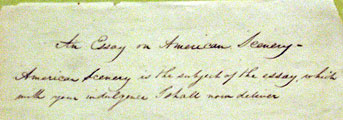 An Essay on American Scenery -
American Scenery is the subject of the essay, which
with your indulgence I shall now deliver